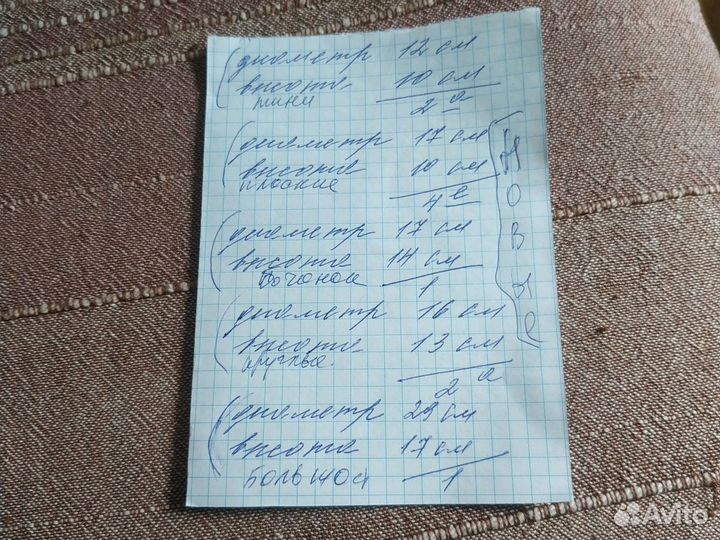 диаметр 12 см
высота 10 см
мини 2 а
диаметр 17 см
высота 10 см
плоские 4 е
диаметр 17 см
высота 14 см
бочонок 1
диаметр 16 см
высота 13 см
круглые 2 а
диаметр 29 см
высота 17 см
большой 1
Новые
Avito